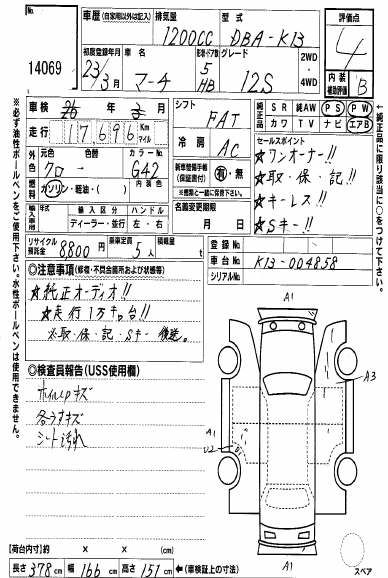 No. 14069
車歴 (自家用以外は記入)
排気量 1200CC
型式 DBA-K13
評価点 4
初度登録年月 23/3月
車名 マーチ
形状・ドア数 5 HB
グレード 12S
2WD
4WD
内装補助評価 B
車検 年 月
走行 17,696 Km マイル
シフト FAT
冷房 AC
純正品 SR 純AW PS PW
カワ TV ナビ エアB
外色 元色 クロ 色替 カラーNo. G42
内装色
燃料 ガソリン・軽油・( )
新車整備手帳(保証書付) 有・無
※書類と一緒に保管下さい。
名義変更期限 月 日
セールスポイント
★ワンオーナー!!
★取・保・記!!
★キーレス!!
★Sキー!!
輸入車年式 輸入区分 ハンドル
ディーラー・並行 左・右
リサイクル預託金 8,800円
乗車定員 5人
積載量 t
登録No.
車台No. K13-004858
シリアルNo.
◎注意事項(修復・不具合箇所および状態等)
★純正オーディオ!!
★走行1万キロ台!!
※取・保・記・Sキー 後送。
◎検査員報告(USS使用欄)
ホイルCPキズ
各うすキズ
シート汚れ
A1
A3
A1
U2
A1
スペア
【荷台内寸】約 × × (cm)
長さ 378cm 幅 166cm 高さ 151cm ←(車検証上の寸法)
※必ず油性ボールペンをご使用下さい。水性ボールペンは使用できません。
←純正品に限り該当に○をつけて下さい。